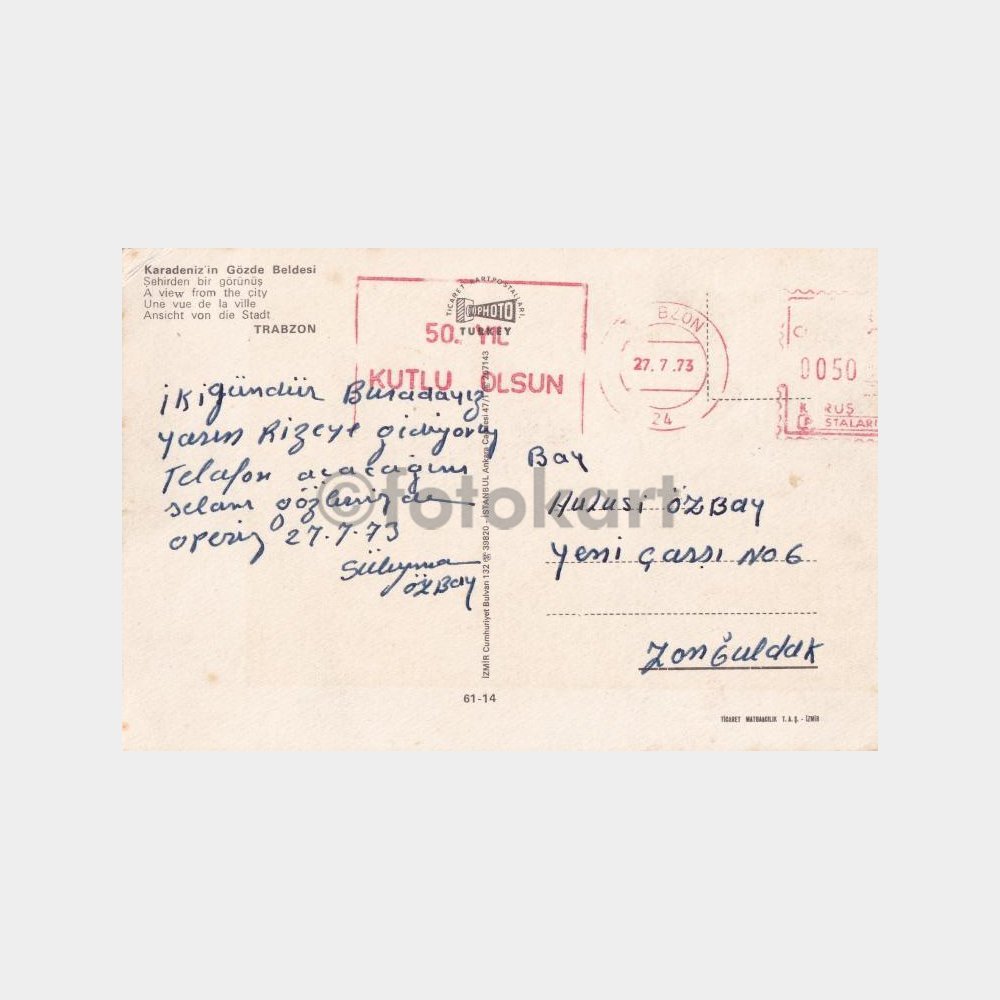 Karadeniz'in Gözde Beldesi
Şehirden bir görünüş
A view from the city
Une vue de la ville
Ansicht von die Stadt
TRABZON
TİCARET KARTPOSTALLARI
PHOTO
TURKEY
50. YIL
KUTLU OLSUN
BZON
27.7.73
24
0050
K RUŞ
P STALARI
iki gündür Buradayız
yarın Rizeye gidiyoruz
Telafon açacağım
selam gözlerinizden
öperiz 27.7.73
Süleyman
ÖZBay
Bay
Hulusi ÖZBay
Yeni Çarşı No 6
Zonguldak
İZMİR Cumhuriyet Bulvarı 132 39820 - İSTANBUL Ankara Caddesi 47/1
©fotokart
61-14
TİCARET MATBAACILIK T.A.Ş. - İZMİR